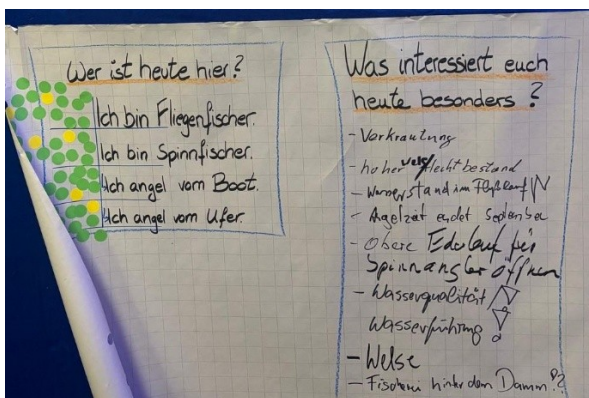 Wer ist heute hier?
Ich bin Fliegenfischer.
Ich bin Spinnfischer.
Ich angel vom Boot.
Ich angel vom Ufer.
Was interessiert euch
heute besonders?
- Verkrautung
- hoher Wels/Hechtbestand
- Wasserstand im Flußlauf
- Angelzeit endet September
- Obere Ederlauf für
Spinnangler öffnen
- Wasserqualität
Wasserführung
- Welse
- Fischerei hinter dem Damm!?